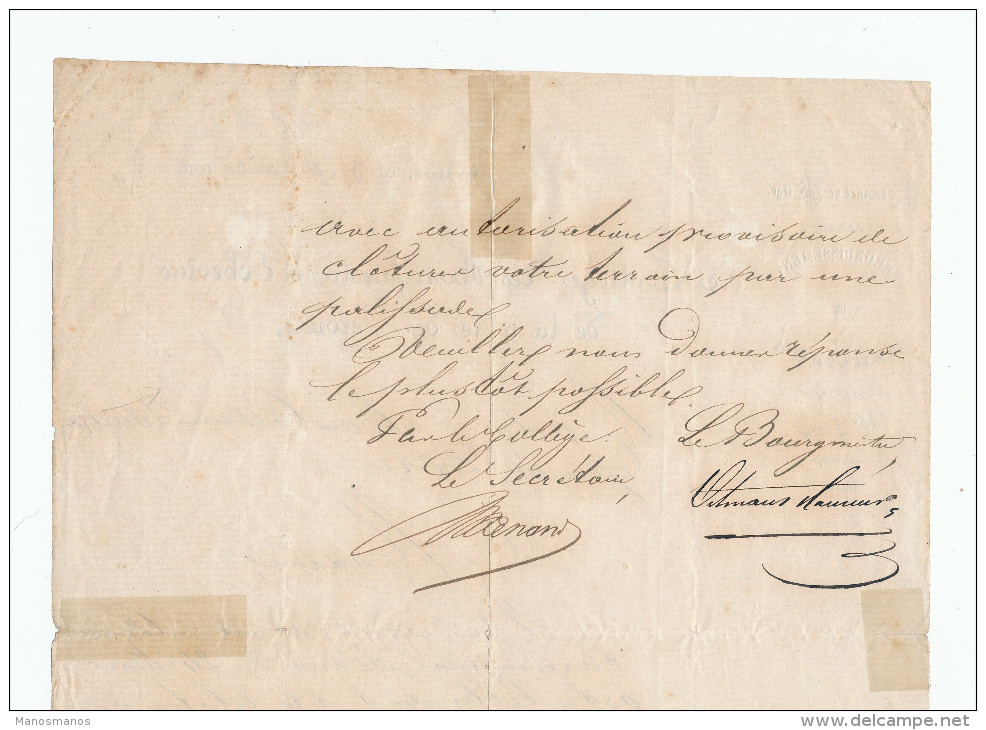 avec autorisation provisoire de
clôturer votre terrain par une
palissade,
Veuillez nous donner réponse
le plustôt possible.
Par le Collège. Le Bourgmestre,
Le Secrétaire,
Manosmanos
www.delcampe.net